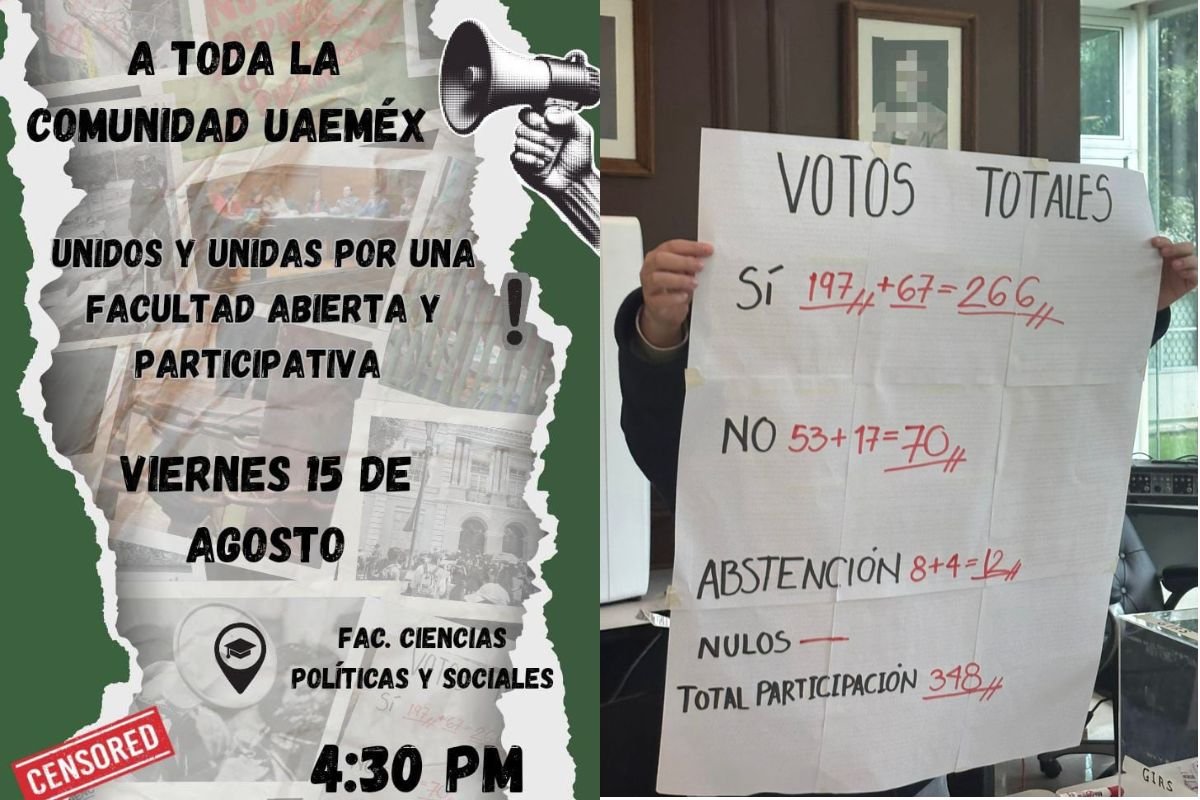 A TODA LA
COMUNIDAD UAEMÉX
UNIDOS Y UNIDAS POR UNA
FACULTAD ABIERTA Y
PARTICIPATIVA
!
VIERNES 15 DE
AGOSTO
FAC. CIENCIAS
POLÍTICAS Y SOCIALES
4:30 PM
CENSORED
VOTOS TOTALES
SÍ 197+67=266
NO 53+17=70
ABSTENCIÓN 8+4=12
NULOS —
TOTAL PARTICIPACIÓN 348